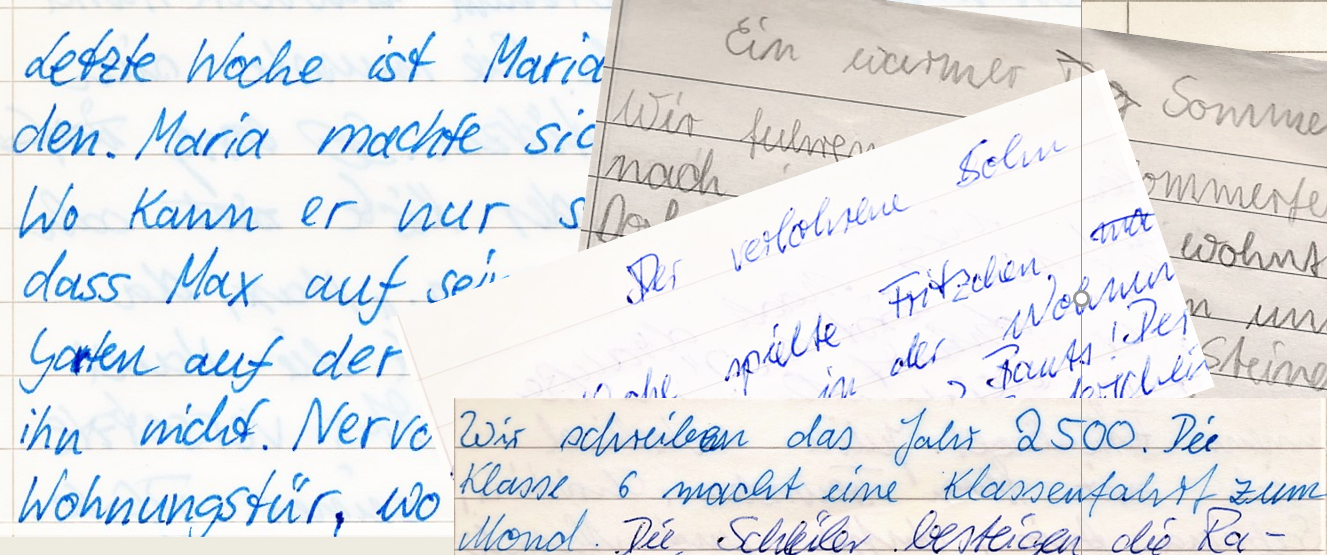 Letzte Woche ist Maria
den. Maria machte sic
Wo kann er nur s
dass Max auf sein
Garten auf der
ihn nicht. Nervo
Wohnungstür, wo
Ein warmer Sommer
Wir fuhren ommerfe
nach wohnt
un
Steine
Der verlohrene Sohn
spielte Fritzchen
in der Wohnun
Bauts! Der
Wir schreiben das Jahr 2500. Die
Klasse 6 macht eine Klassenfahrt zum
Mond. Die Schüler besteigen die Ra-